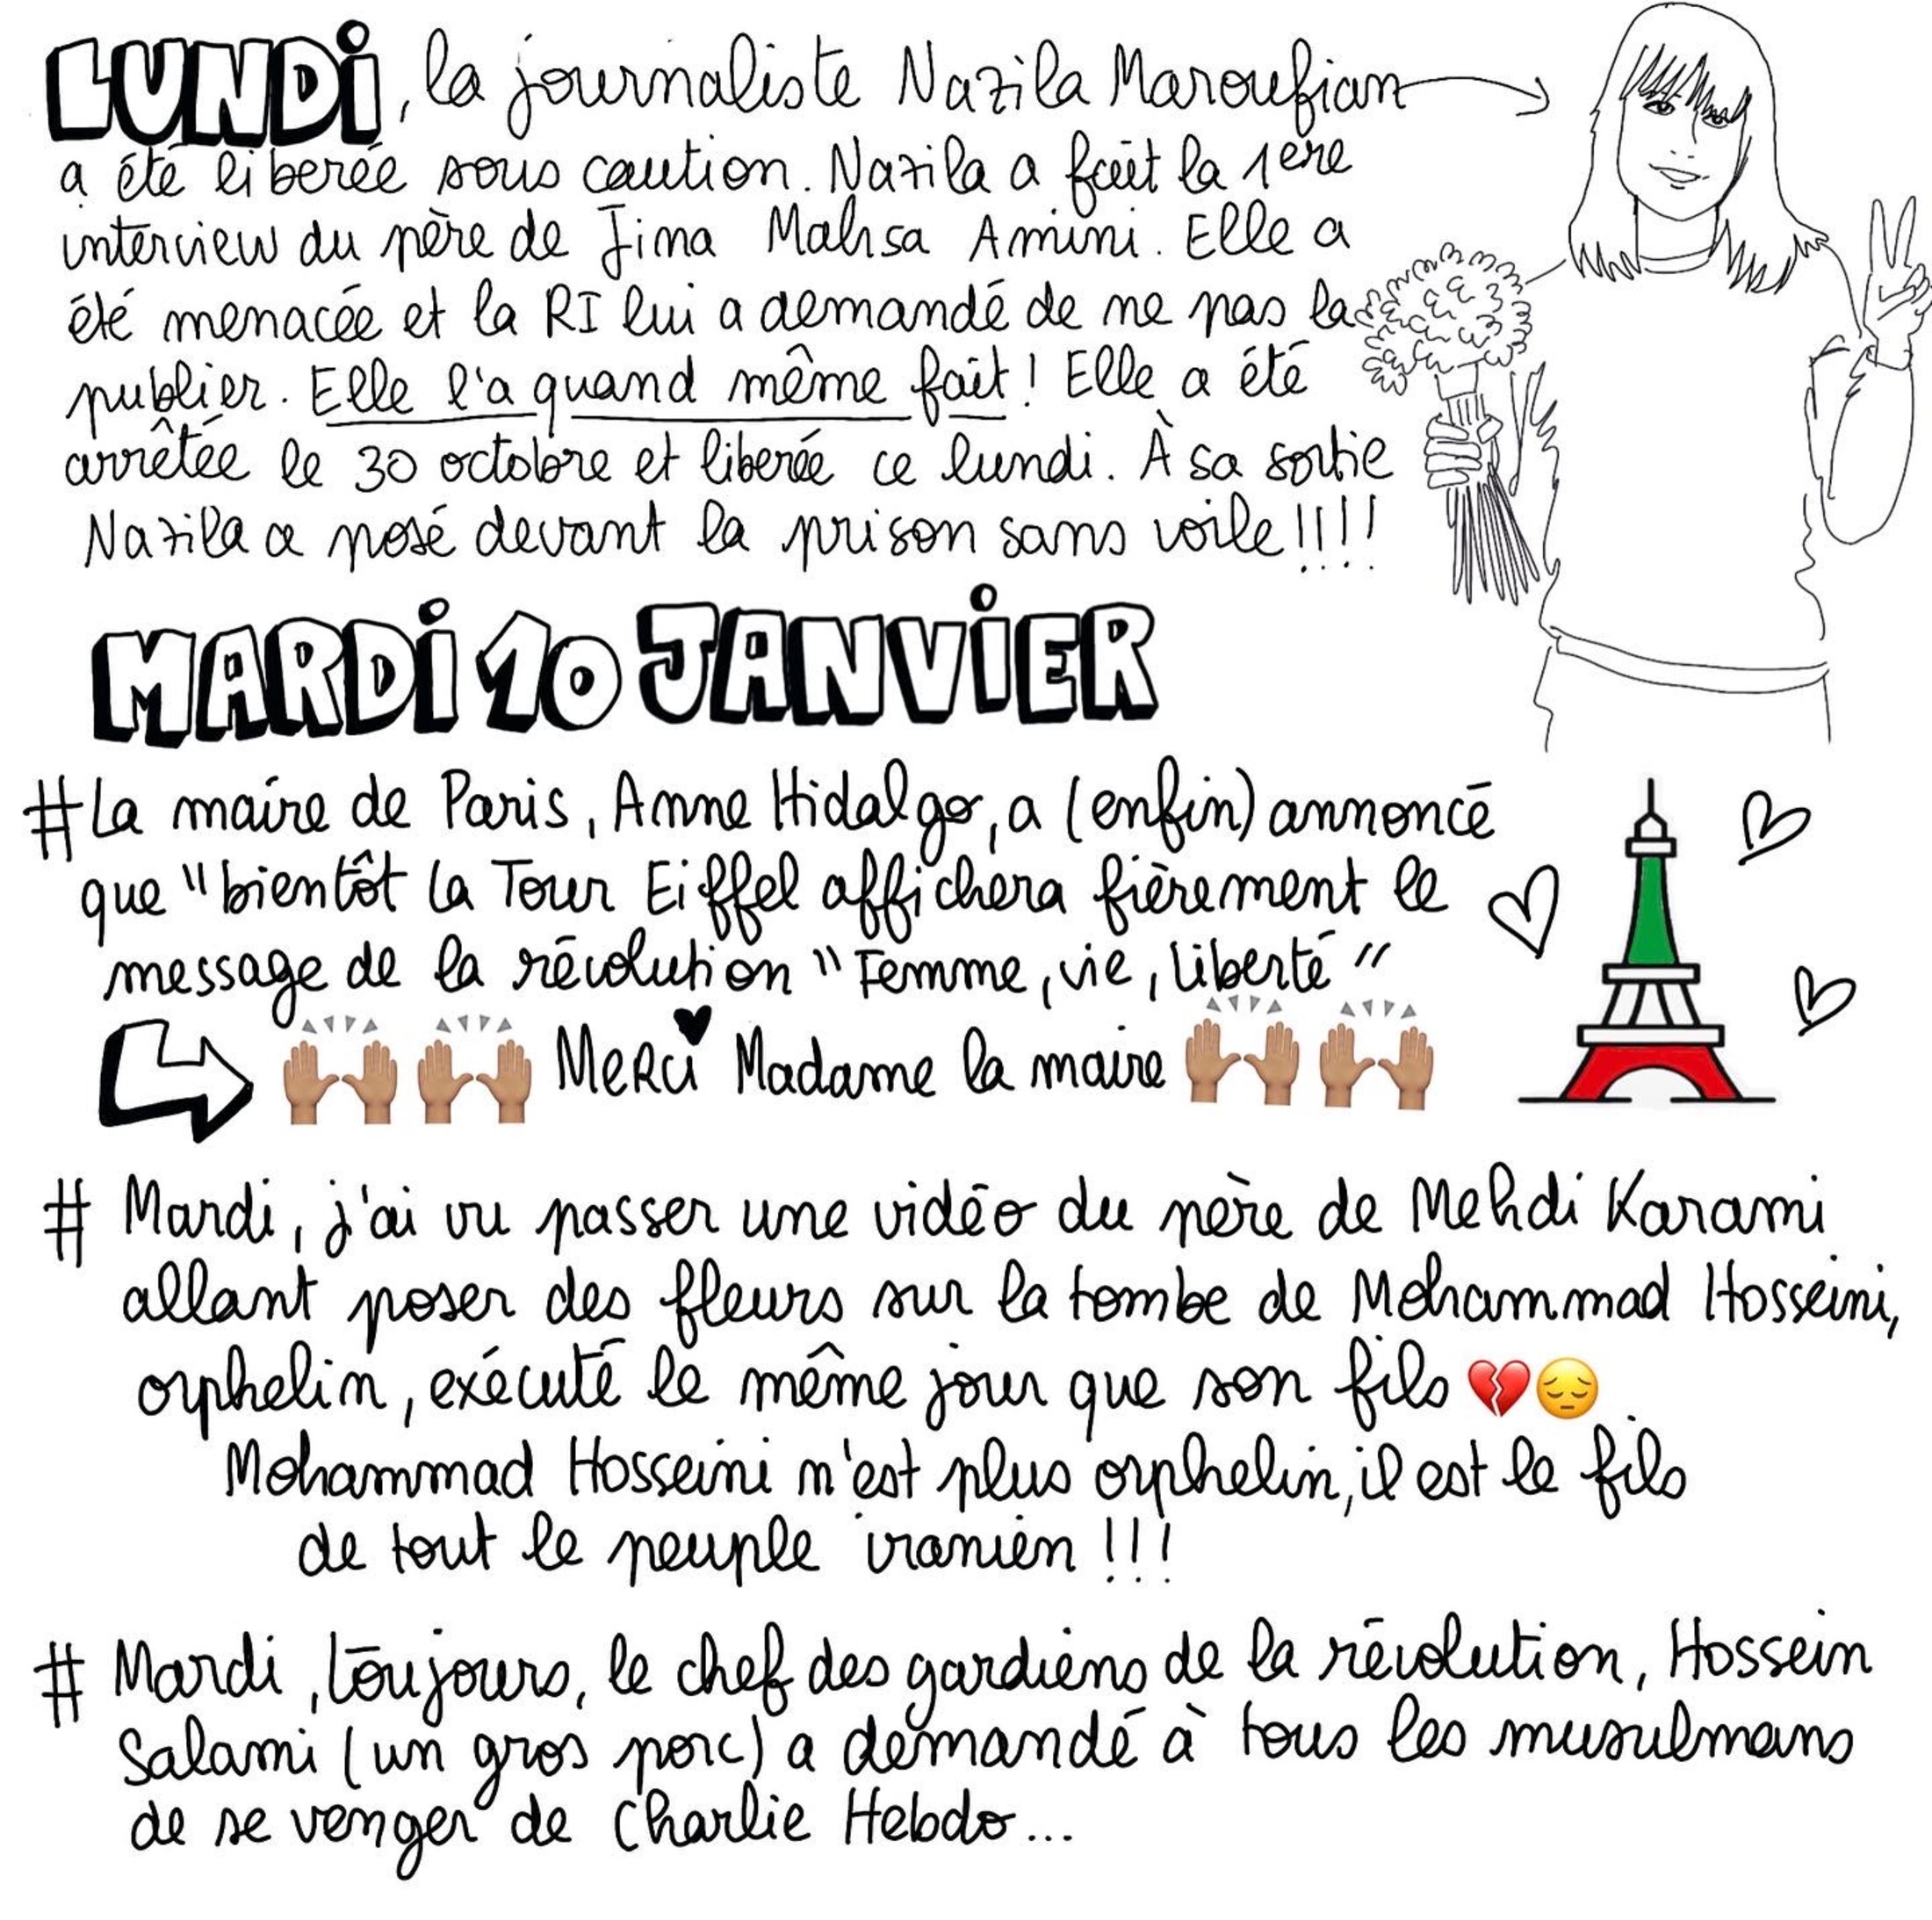 LUNDI, la journaliste Nazila Maroufian
a été liberée sous caution. Nazila a fait la 1ère
interview du père de Jina Mahsa Amini. Elle a
été menacée et la RI lui a demandé de ne pas la
publier. Elle l'a quand même fait! Elle a été
arrêtée le 30 octobre et liberée ce lundi. À sa sortie
Nazila a posé devant la prison sans voile!!!!
MARDI 10 JANVIER
#La maire de Paris, Anne Hidalgo, a (enfin) annoncé
que "bientôt la Tour Eiffel affichera fièrement le
message de la révolution "Femme, vie, liberté"
🙌🏽🙌🏽 Merci Madame la maire 🙌🏽🙌🏽
# Mardi, j'ai vu passer une vidéo du père de Mehdi Karami
allant poser des fleurs sur la tombe de Mohammad Hosseini,
orphelin, exécuté le même jour que son fils 💔😔
Mohammad Hosseini n'est plus orphelin, il est le fils
de tout le peuple iranien !!!
# Mardi, toujours, le chef des gardiens de la révolution, Hossein
Salami (un gros porc) a demandé à tous les musulmans
de se venger de Charlie Hebdo...